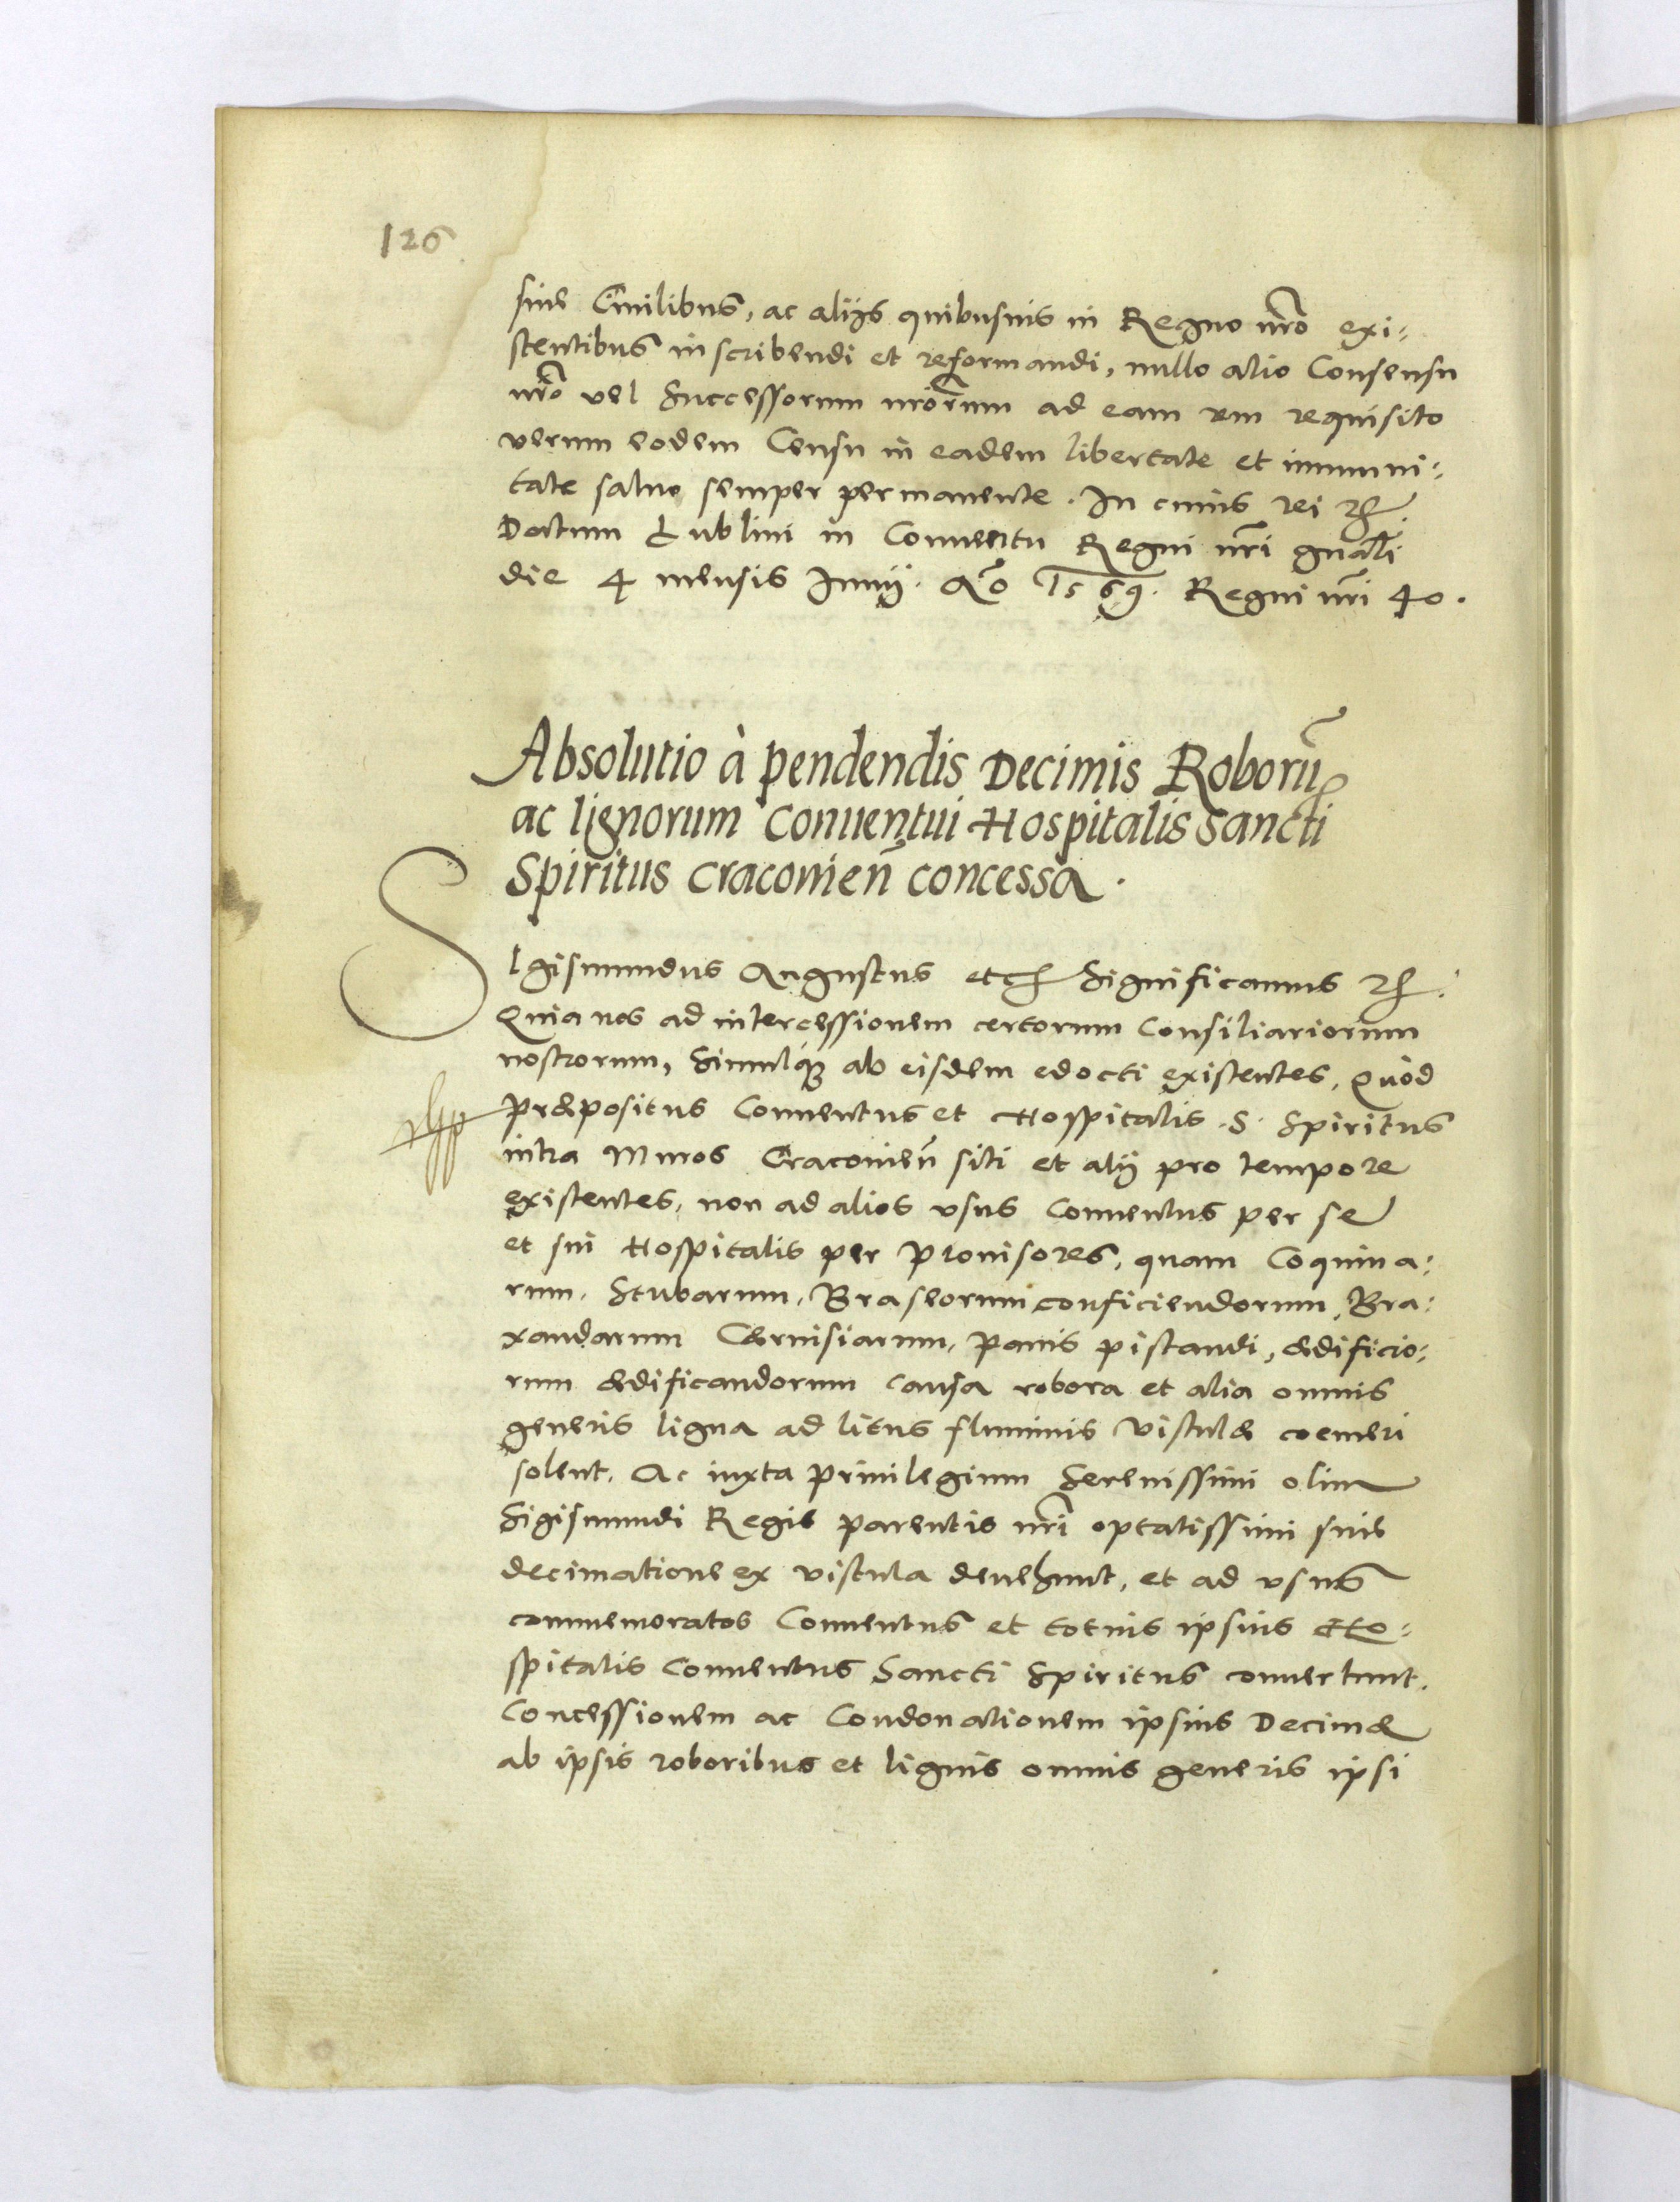 126
siue Ciuilibus, ac alijs quibusuis in Regno nr̃o exi:
stentibus inscribendi et reformandi, nullo alio Consensu
nr̃o vel Successorum nr̃orum ad eam rem requisito
verum eodem Censu in eadem libertate et immuni:
tate saluo semper permanente. In cuius rei etc̃
Datum Lublini in Conuentu Regni nr̃i gñali
die 4 mensis Junij. Aõ 1569. Regni nr̃i 40.
Absolutio à pendendis Decimis Roborũ
ac lignorum Conuentui Hospitalis Sancti
Spiritus Cracouień concessa.
SIgismundus Augustus etc̃ Significamus etc̃.
Quia nos ad intercessionem certorum Consiliariorum
nostrorum, Simulq́ue ab eisdem edocti existentes, Quòd
Præpositus Conuentus et Hospitalis S. Spiritus
intra Muros Cracouień siti et alij pro tempore
existentes, non ad alios vsus Conuentus per se
et sui Hospitalis per Prouisores, quam Coquina:
rum, Stubarum, Braseorum conficiendorum, Bra:
xandarum Cæruisiarum, Panis pistandi, ædificio:
rum ædificandorum causa robora et alia omnis
generis ligna ad litus fluminis Vistulæ coemeri
solent, Ac iuxta Priuilegium Serenissimi olim
Sigismundi Regis parentis nr̃i optatissimi sine
decimatione ex Vistula deuehunt, et ad vsus
commemoratos Conuentus et totius ipsius Ho:
spitalis Conuentus Sancti Spiritus conuertunt.
Concessionem ac Condonationem ipsius Decimæ
ab ipsis roboribus et lignis omnis generis ipsi